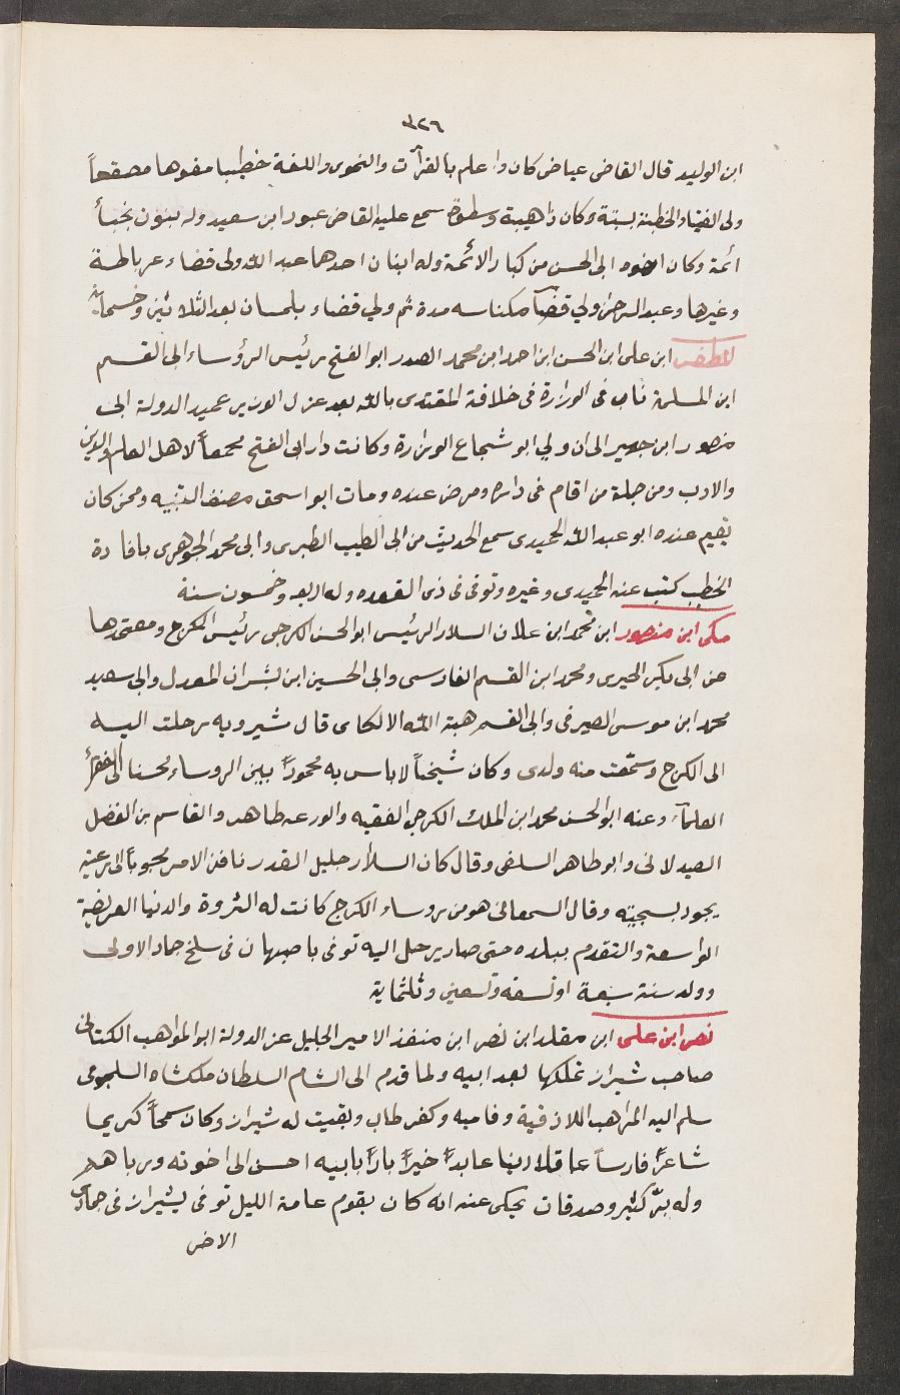 ٣٢٦
ابن الوليد قال القاضي عياض كان واعلم بالقرآت والنحوى واللغة خطيبا مفوها مصقعاً
ولى الفتيا والخطبة بسبتة وكان ذاهيبة وسطوة سمع عليه القاضى عبود ابن سعيد وله بنون نجبأ
ائمة وكان اخوه ابى الحسن من كبار الائمة وله ابنان احدهما عبد الله ولى قضاء غرناطة
وغيرها وعبد الرحمن ولي قضآ مكناسه مدة ثم ولي قضاء بلمسان بعد الثلاثين وخسماية
المظفر ابن على ابن الحسن ابن احمد ابن محمد الصدر ابو الفتح رئيس الرؤساء ابى القسم
ابن المسلمة ناب فى الوزارة فى خلافة المقتدى بالله بعد عزل الوزير عميد الدولة ابى
منصور ابن جهير الى ان ولي ابو شجاع الوزارة وكانت دار ابى الفتح مجمعاً لاهل العلم والدين
والادب ومن جملة من اقام فى داره ومرض عنده ومات ابو اسحق مصنف التنبيه وممن كان
يقيم عنده ابو عبد الله الحميدى سمع الحديث من ابى الطيب الطبرى وابى محمد الجوهرى بافادة
الخطيب كتب عنه الحميدى وغيره وتوفى فى ذى القعده وله اربع وخمسون سنة
مكى ابن منصور ابن محمد ابن علان السلار الرئيس ابو الحسن الكرجى رئيس الكرج ومعتمدها
عن ابى بكر الحيرى ومحمد ابن القسم الفارسى وابى الحسين ابن بشران المعدل وابى سعيد
محمد ابن موسى الصيرفى وابى القسم هبة الله الالكاى قال شيرويه رحلت اليه
الى الكرج وسمعت منه ولدى وكان شيخاً لا باس به محموداً بين الروساء محسنا الى الفقرأ
العلمآء وعنه ابو الحسن محمد ابن الملك الكرجى الفقيه والورعه طاهر والقاسم بن الفضل
الصيدلانى وابو طاهر السلفى وقال كان السلار جليل القدر نافذ الامر محبوباً الى رعيته
يجود بسجيته وقال السمعانى هو من روساء الكرج كانت له الثروة والدنيا العريضة
الواسعة والتقدم ببلده حتى صار يرحل اليه توفى باصبهان فى سلخ جماد الاولى
وولد سنة سبعة او تسعة وتسعين وثلثماية
نصر ابن على ابن مقلد ابن نصر ابن منقذ الامير الجليل عز الدولة ابو المواهب الكنانى
صاحب شيراز تملكها بعد ابيه ولما قدم الى الشام السلطان ملكشاه السلجوقى
سلم اليه المراهب اللاذقية وفاميه وكفر طاب وبقيت له شيراز وكان سمحاً كريما
شاعراً فارساً عاقلاً دينا عابداً خيراً باراً بابيه احسن الى اخوته ورباهم
وله بر كثير وصدقات يحكى عنه انه كان يقوم عامة الليل توفى بشيراز فى جمادى
الاخر